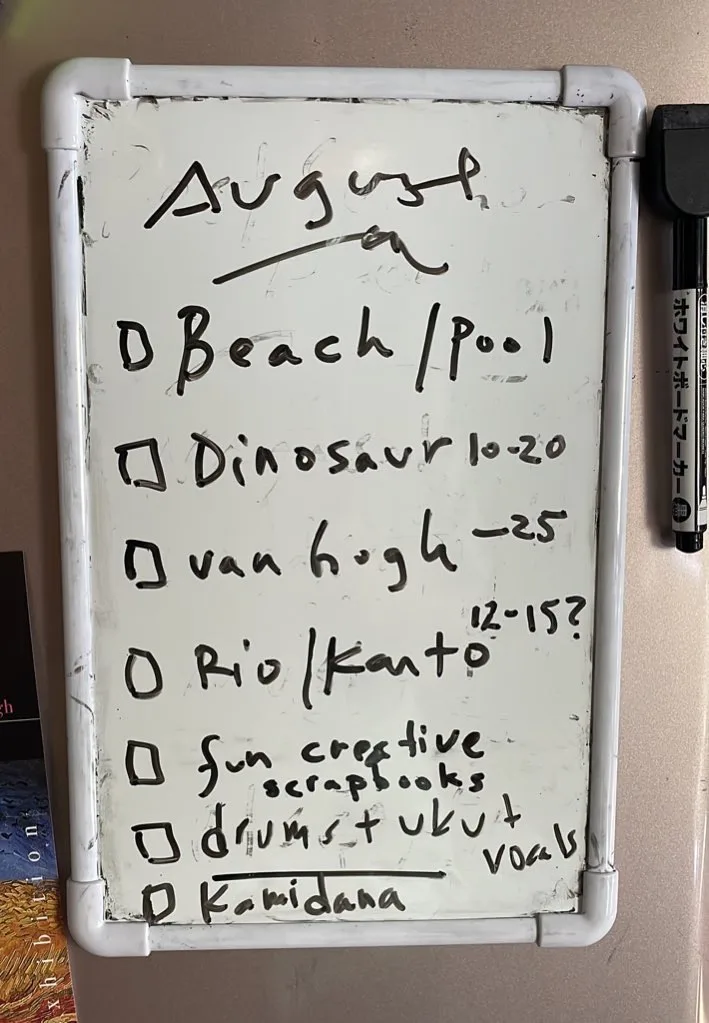 August
Beach/pool
Dinosaur 10-20
van hogh -25
12-15?
Rio/Kanto
fun creative
scrapbooks
drums + uku +
vocals
Kamidana
ホワイトボードマーカー 黒
gh
xhibition